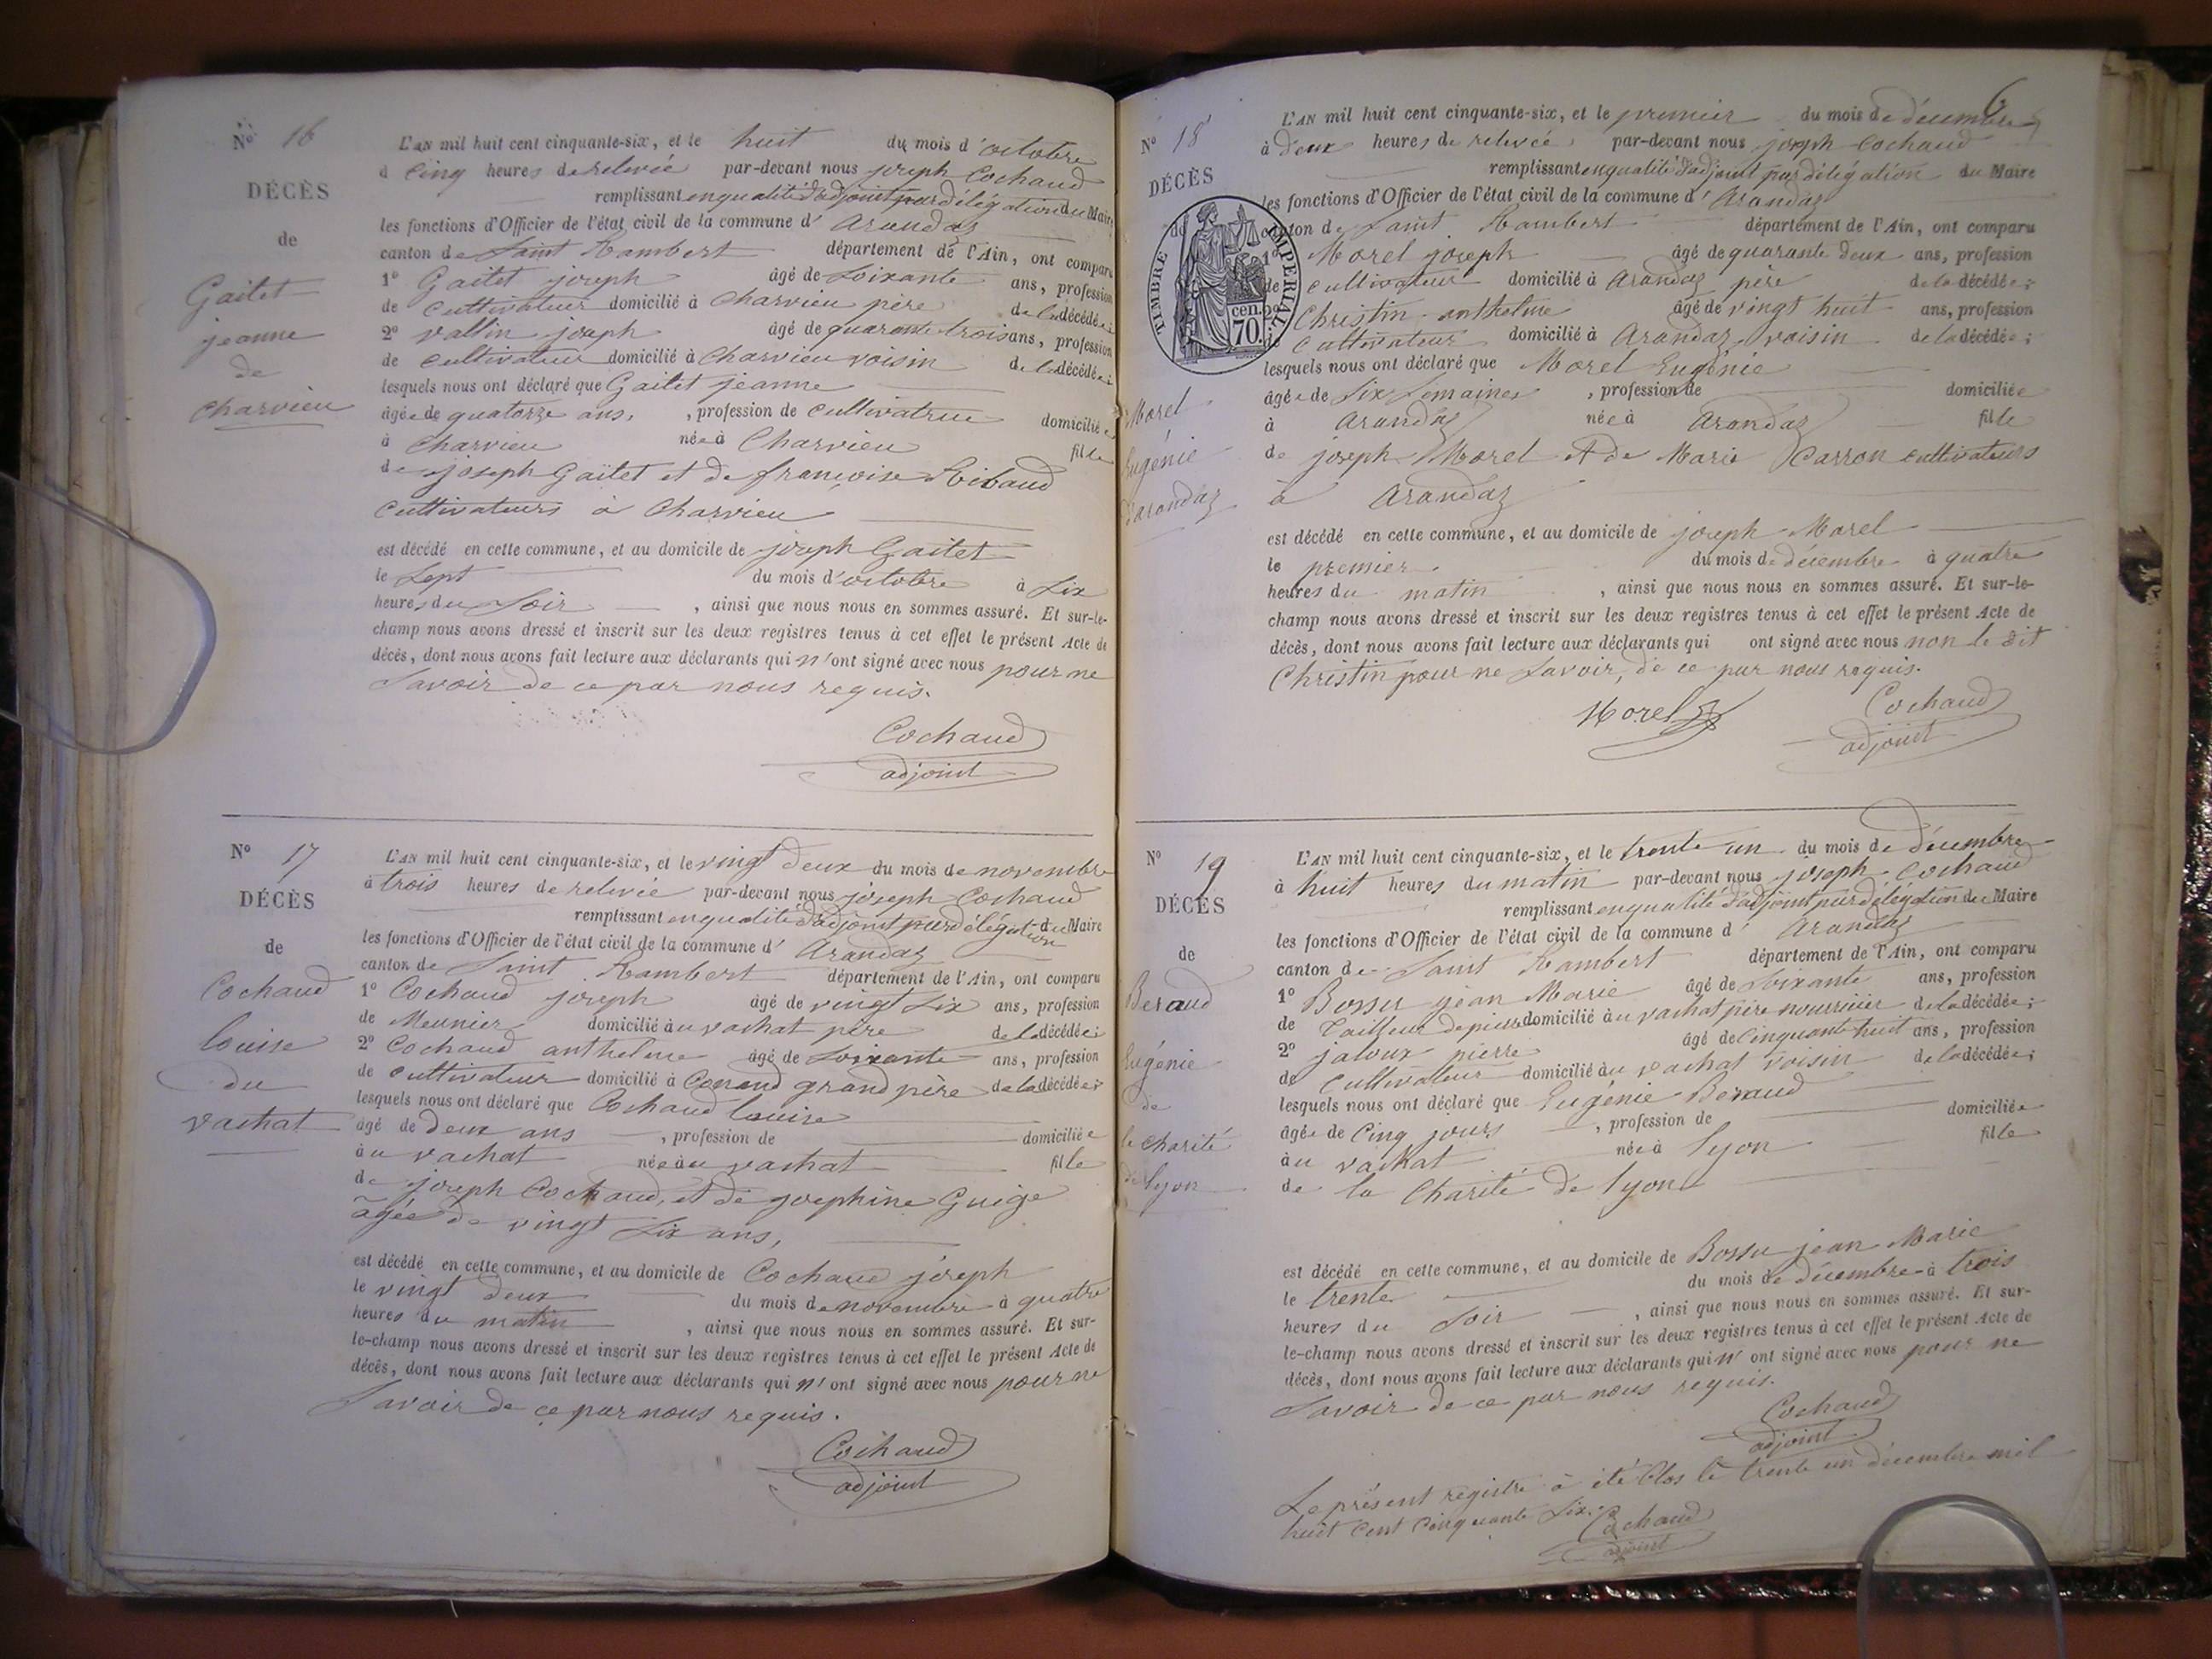 Nº 16
DÉCÈS
de
Gaitet
jeanne
de
Charvieu
L'AN mil huit cent cinquante-six, et le huit du mois d'octobre
à cinq heures de relevée par-devant nous joseph Cochaud
remplissant en qualité d'adjoint par délégation du Maire
les fonctions d'Officier de l'état civil de la commune d'Arandaz
canton de Saint Rambert département de l'Ain, ont comparu
1º Gaitet joseph âgé de soixante ans, profession
de cultivateur domicilié à Charvieu père de la décédée;
2º vallin joseph âgé de quarante trois ans, profession
de cultivateur domicilié à Charvieu voisin de la décédée;
lesquels nous ont déclaré que Gaitet jeanne
âgée de quatorze ans, , profession de cultivatrice domiciliée
à Charvieu née à Charvieu fille
de joseph Gaitet et de françoise Ribaud
cultivateurs à Charvieu
est décédé en cette commune, et au domicile de joseph Gaitet
le sept du mois d'octobre à six
heures du soir , ainsi que nous nous en sommes assuré. Et sur-le-
champ nous avons dressé et inscrit sur les deux registres tenus à cet effet le présent Acte de
décès, dont nous avons fait lecture aux déclarants qui n'ont signé avec nous pour ne
savoir de ce par nous requis.
Cochaud
adjoint
Nº 17
DÉCÈS
de
Cochaud
louise
du
vachat
L'AN mil huit cent cinquante-six, et le vingt deux du mois de novembre
à trois heures de relevée par-devant nous joseph Cochaud
remplissant en qualité d'adjoint par délégation du Maire
les fonctions d'Officier de l'état civil de la commune d'Arandaz
canton de Saint Rambert département de l'Ain, ont comparu
1º Cochaud joseph âgé de vingt six ans, profession
de Meunier domicilié au vachat père de la décédée;
2º Cochaud anthelme âgé de soixante ans, profession
de cultivateur domicilié à Conand grand père de la décédée;
lesquels nous ont déclaré que Cochaud louise
âgé de deux ans , profession de domiciliée
au vachat née au vachat fille
de joseph Cochaud, et de josephine Guige
âgée de vingt six ans,
est décédé en cette commune, et au domicile de Cochaud joseph
le vingt deux du mois de novembre à quatre
heures du matin , ainsi que nous nous en sommes assuré. Et sur-
le-champ nous avons dressé et inscrit sur les deux registres tenus à cet effet le présent Acte de
décès, dont nous avons fait lecture aux déclarants qui n'ont signé avec nous pour ne
savoir de ce par nous requis.
Cochaud
adjoint
6
Nº 18
DÉCÈS
de
TIMBRE IMPÉRIAL.
cen.
70.
Morel
Eugénie
d'arandaz
L'AN mil huit cent cinquante-six, et le premier du mois de décembre
à deux heures de relevée par-devant nous joseph Cochaud
remplissant en qualité d'adjoint par délégation du Maire
les fonctions d'Officier de l'état civil de la commune d'Arandaz
canton de Saint Rambert département de l'Ain, ont comparu
1º Morel joseph âgé de quarante deux ans, profession
de cultivateur domicilié à Arandaz père de la décédée;
2º Christin anthelme âgé de vingt huit ans, profession
de cultivateur domicilié à Arandaz voisin de la décédée;
lesquels nous ont déclaré que Morel Eugénie
âgée de six semaines , profession de domiciliée
à Arandaz née à Arandaz fille
de joseph Morel et de Marie Carron cultivateurs
à Arandaz
est décédé en cette commune, et au domicile de joseph Morel
le premier du mois de décembre à quatre
heures du matin , ainsi que nous nous en sommes assuré. Et sur-le-
champ nous avons dressé et inscrit sur les deux registres tenus à cet effet le présent Acte de
décès, dont nous avons fait lecture aux déclarants qui ont signé avec nous non le dit
Christin pour ne savoir, de ce par nous requis.
Morel Cochaud
adjoint
Nº 19
DÉCÈS
de
Beraud
Eugénie
de
la charité
de lyon
L'AN mil huit cent cinquante-six, et le trente un du mois de décembre
à huit heures du matin par-devant nous joseph Cochaud
remplissant en qualité d'adjoint par délégation du Maire
les fonctions d'Officier de l'état civil de la commune d'Arandaz
canton de Saint Rambert département de l'Ain, ont comparu
1º Bossu jean Marie âgé de soixante ans, profession
de Tailleur de pierre domicilié au vachat père nourricier de la décédée;
2º jaloux pierre âgé de cinquante huit ans, profession
de cultivateur domicilié au vachat voisin de la décédée;
lesquels nous ont déclaré que Eugénie Beraud
âgée de cinq jours , profession de domiciliée
au vachat née à lyon fille
de la Charité de lyon
est décédé en cette commune, et au domicile de Bossu jean Marie
le trente du mois de décembre à trois
heures du soir , ainsi que nous nous en sommes assuré. Et sur-
le-champ nous avons dressé et inscrit sur les deux registres tenus à cet effet le présent Acte de
décès, dont nous avons fait lecture aux déclarants qui n'ont signé avec nous pour ne
savoir de ce par nous requis.
Cochaud
adjoint
Le présent registre à été Clos le trente un décembre mil
huit Cent Cinquante six. Cochaud
adjoint